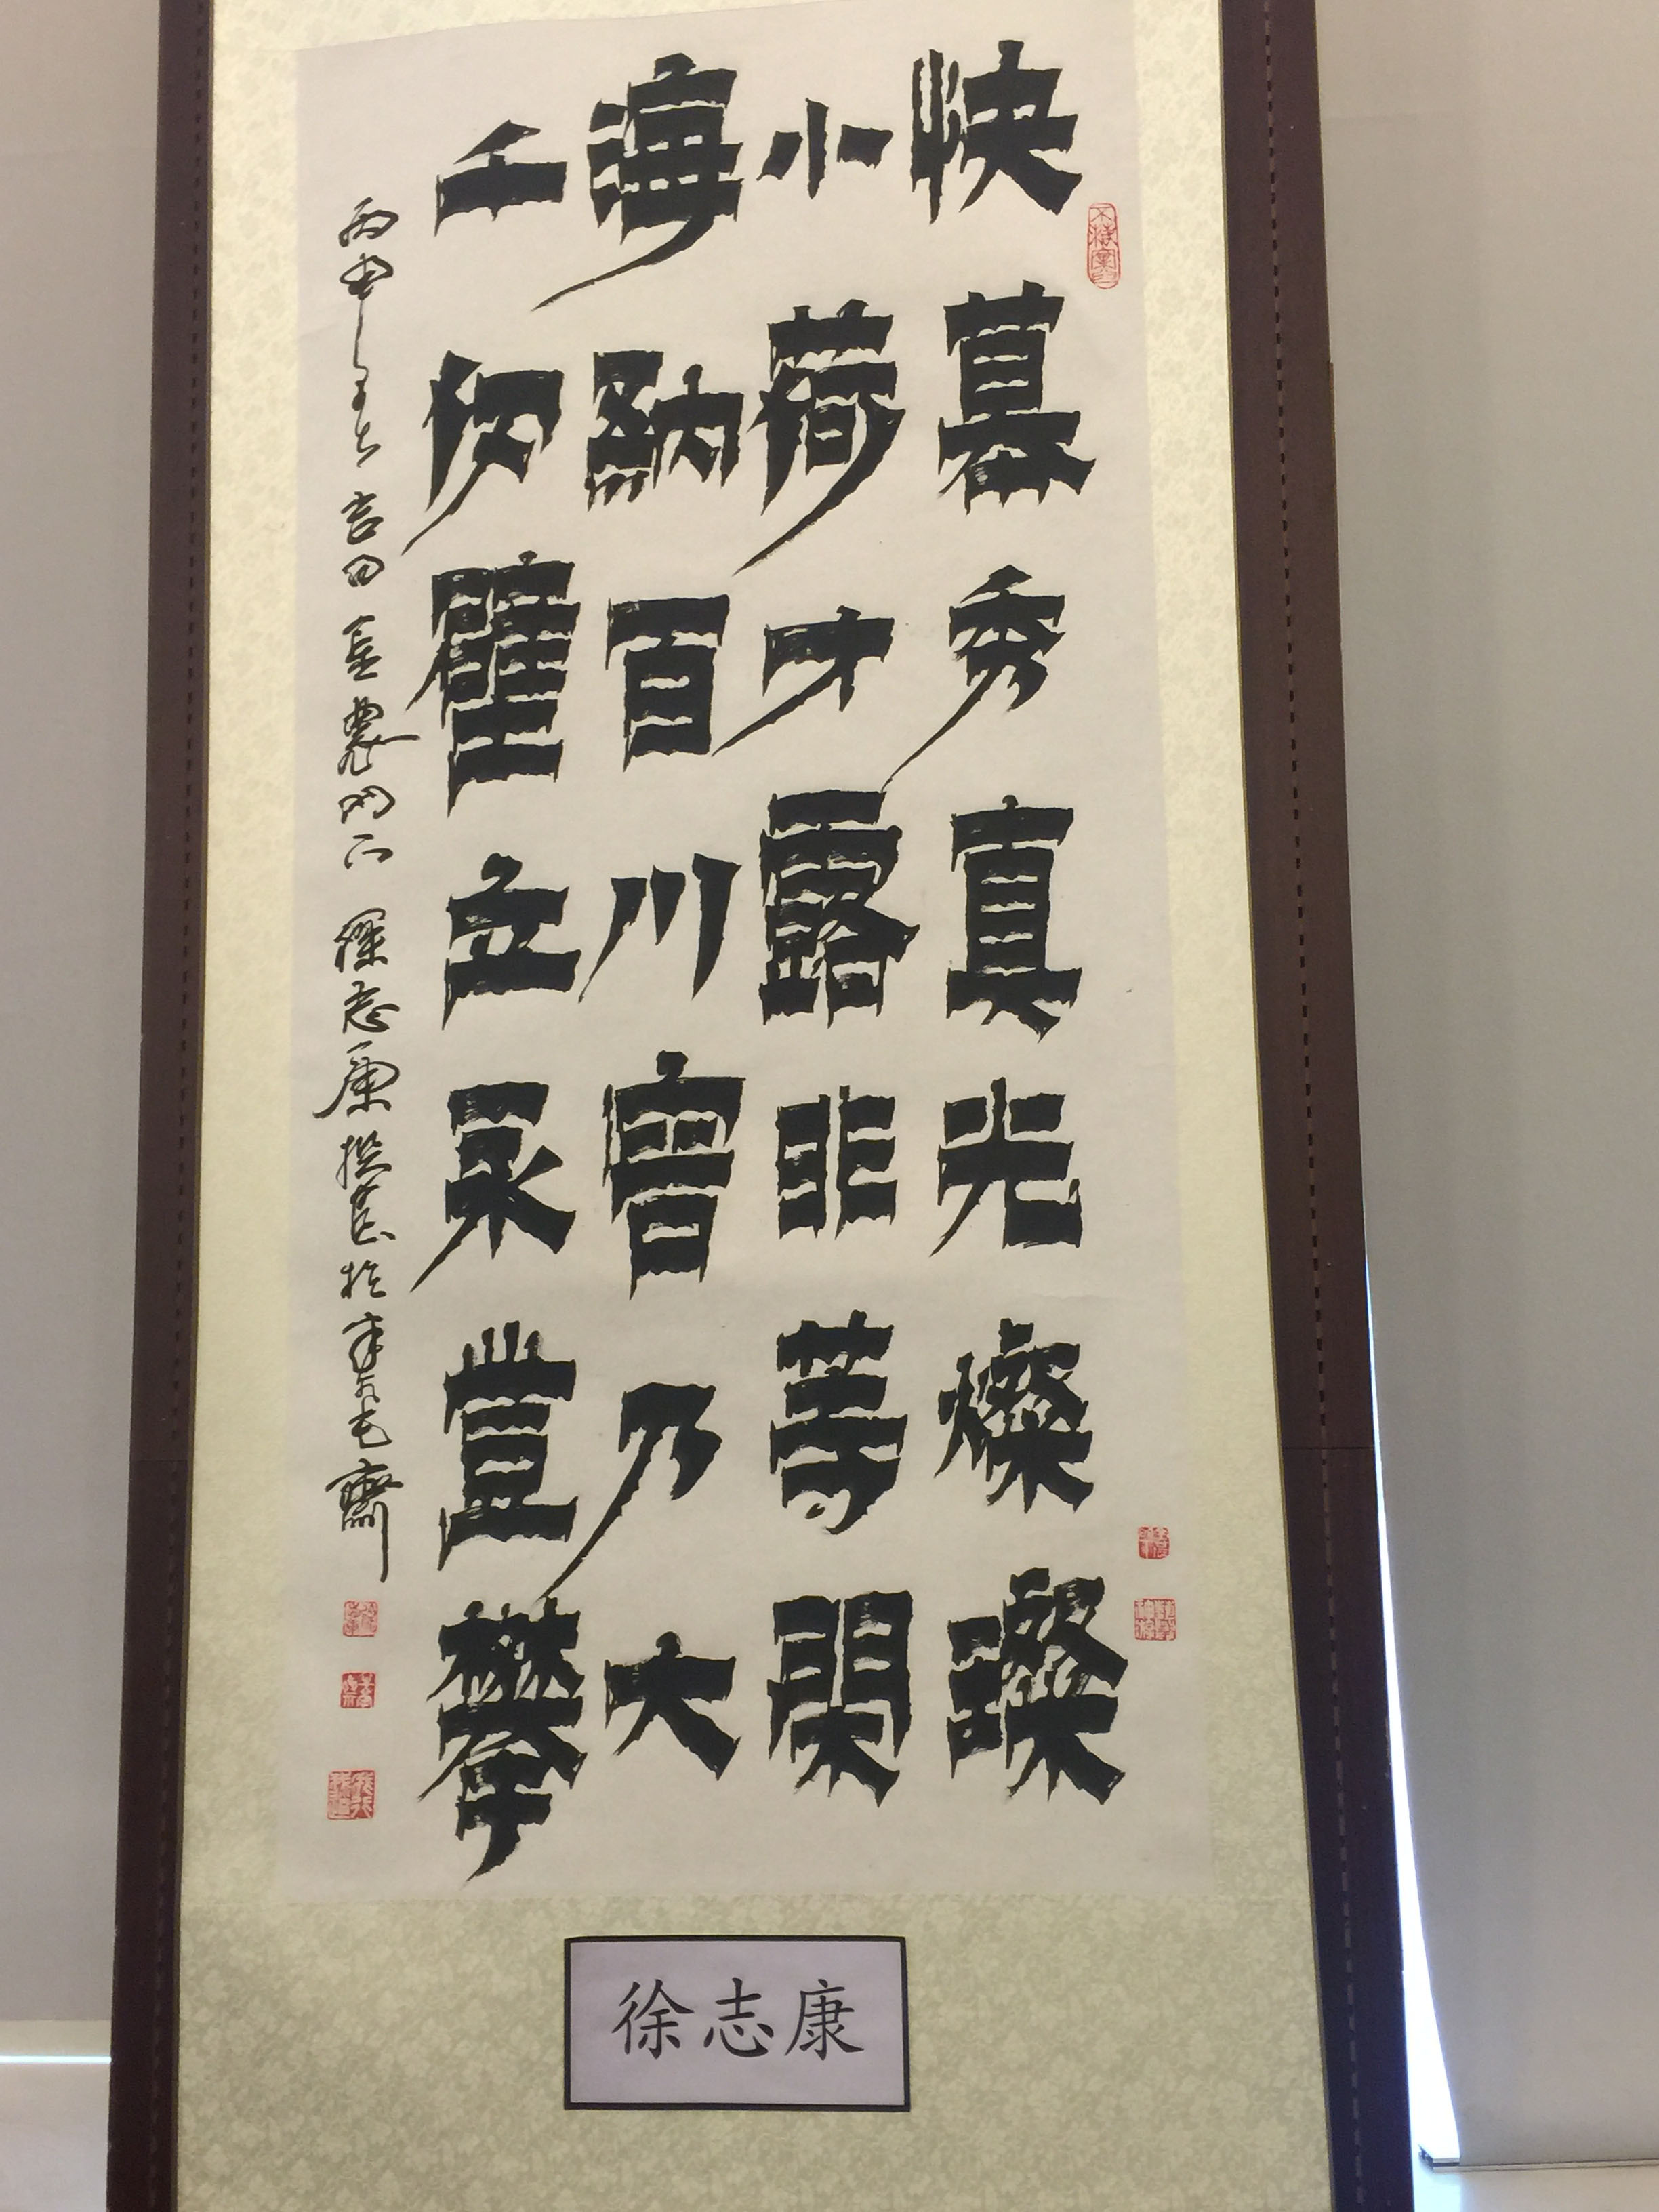 快慕秀真光燦璨
小荷才露非等閑
海納百川容乃大
千仞壁立永豈攀
丙申 吉日 金農 徐志康撰書於 齋
徐志康